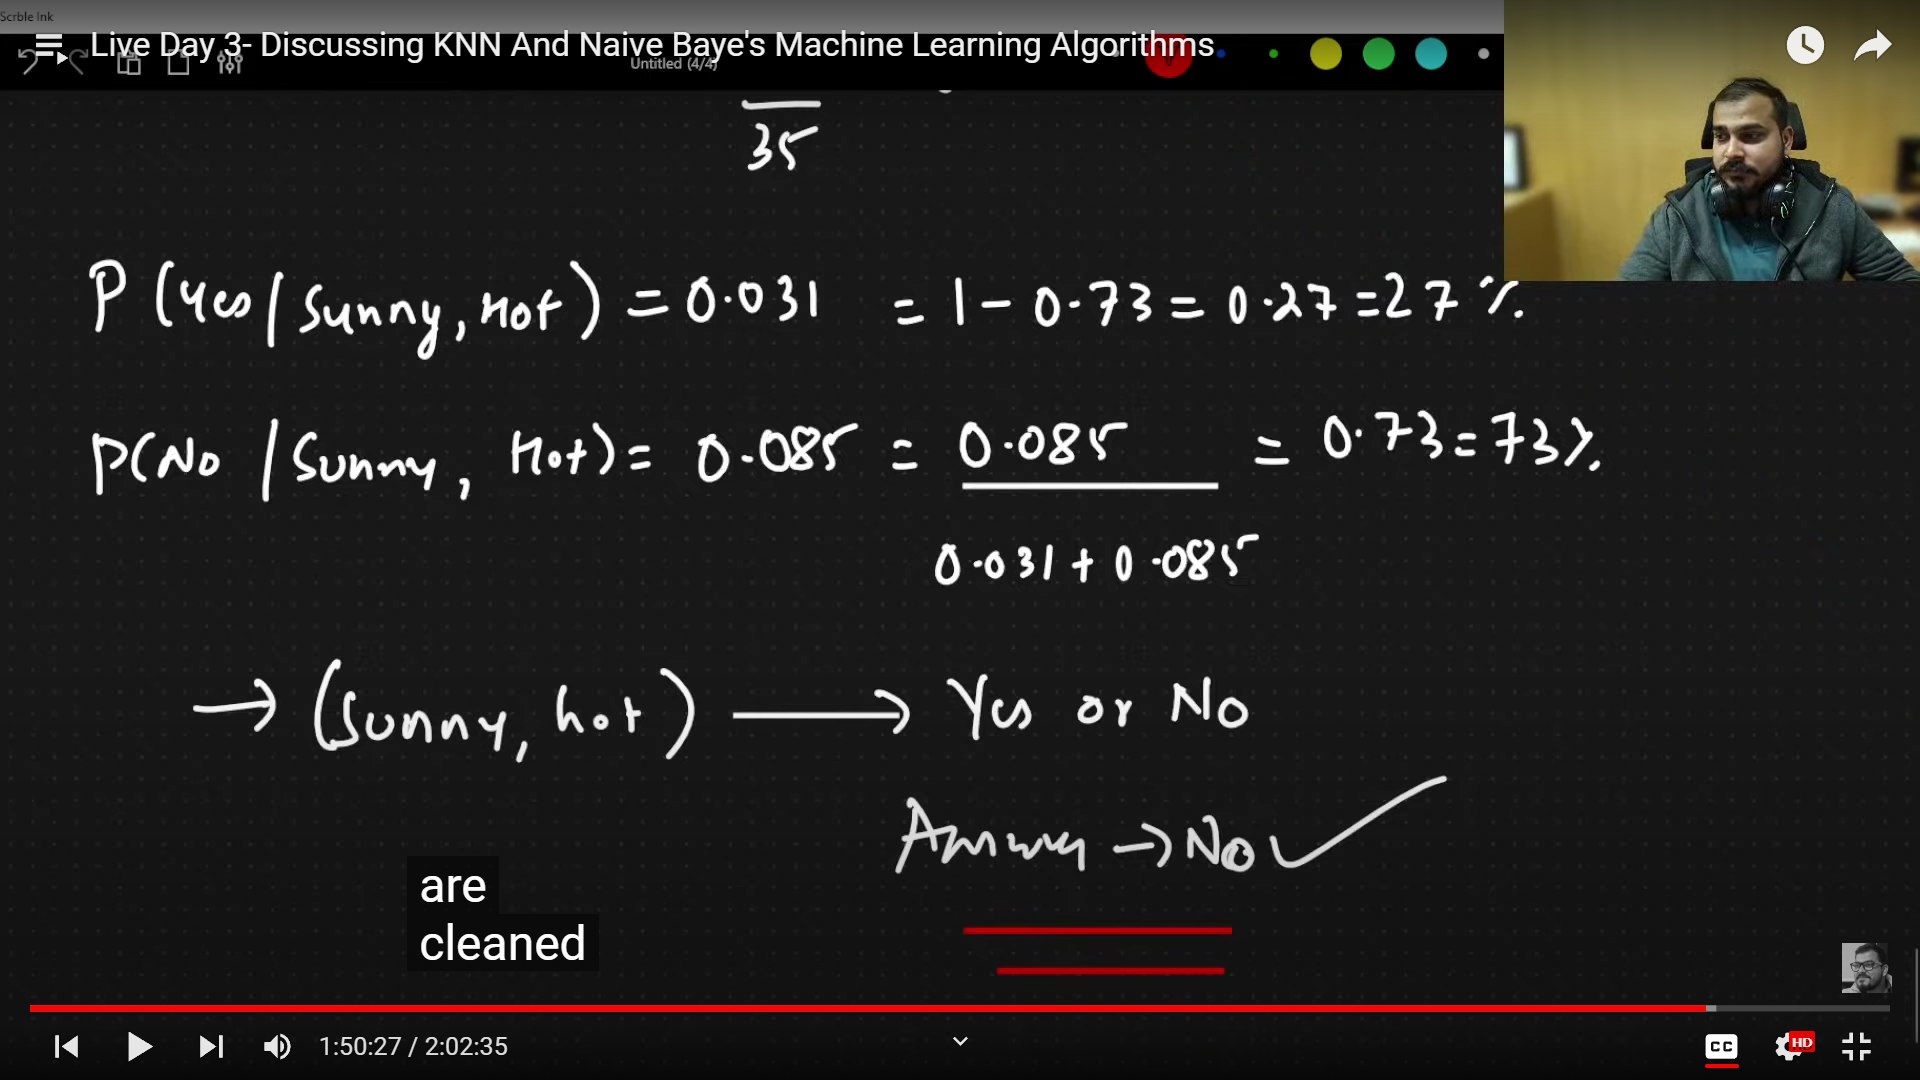 Scrble Ink
Live Day 3- Discussing KNN And Naive Baye's Machine Learning Algorithms
Untitled (4/4)
35
P (Yes / Sunny, Hot) = 0.031 = 1 - 0.73 = 0.27 = 27 %.
P(No / Sunny, Hot) = 0.085 = 0.085 = 0.73 = 73%.
0.031 + 0.085
→ (Sunny, hot) → Yes or No
→ No ✓
are
cleaned
1:50:27 / 2:02:35
CC
HD